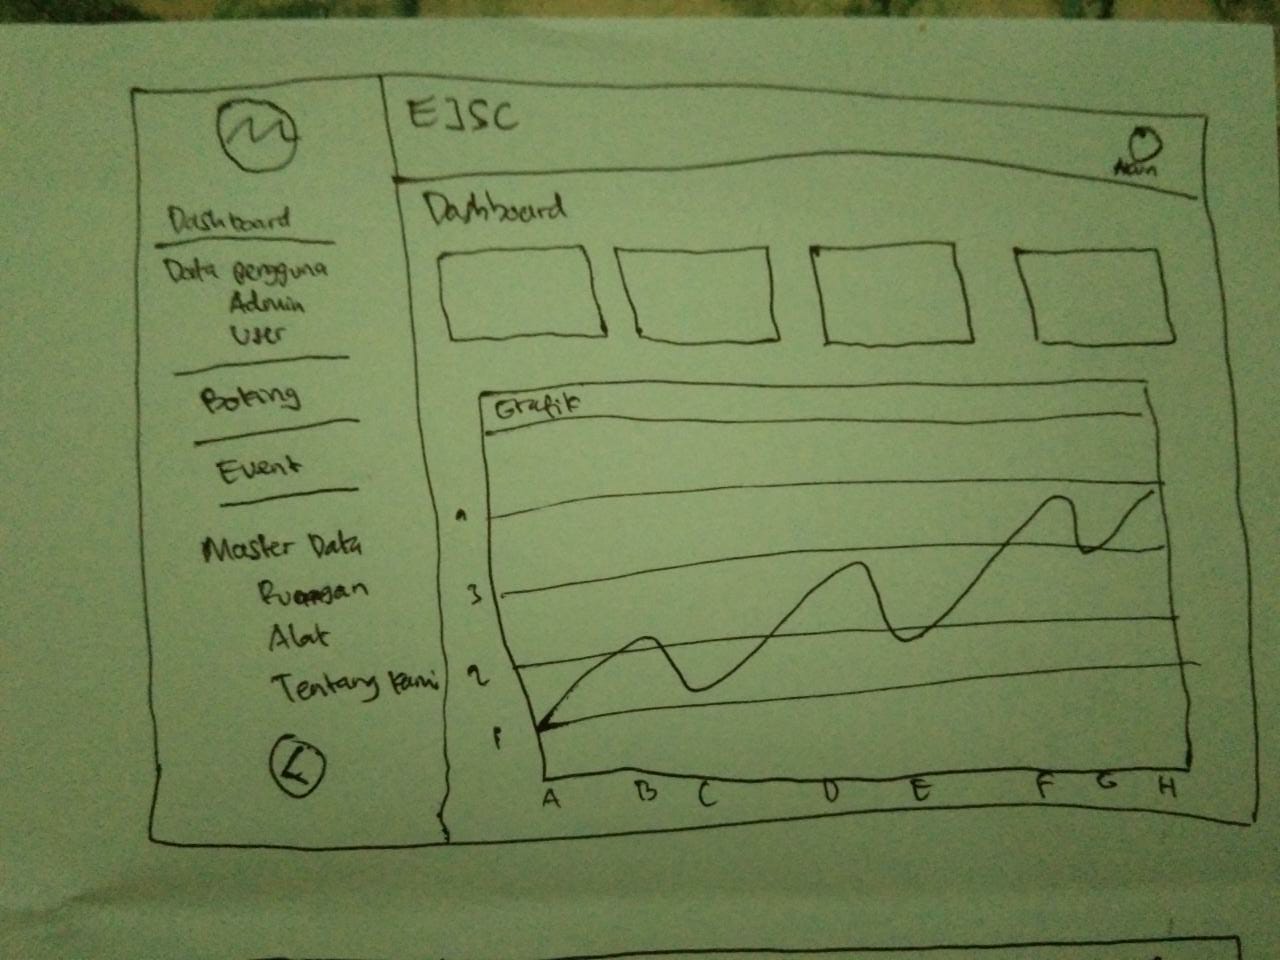 EJSC
Dashboard
Data pengguna
Admin
User
Boking
Event
Master Data
Ruangan
Alat
Tentang kami
Akun
Dashboard
Grafik
3
2
1
A B C D E F G H